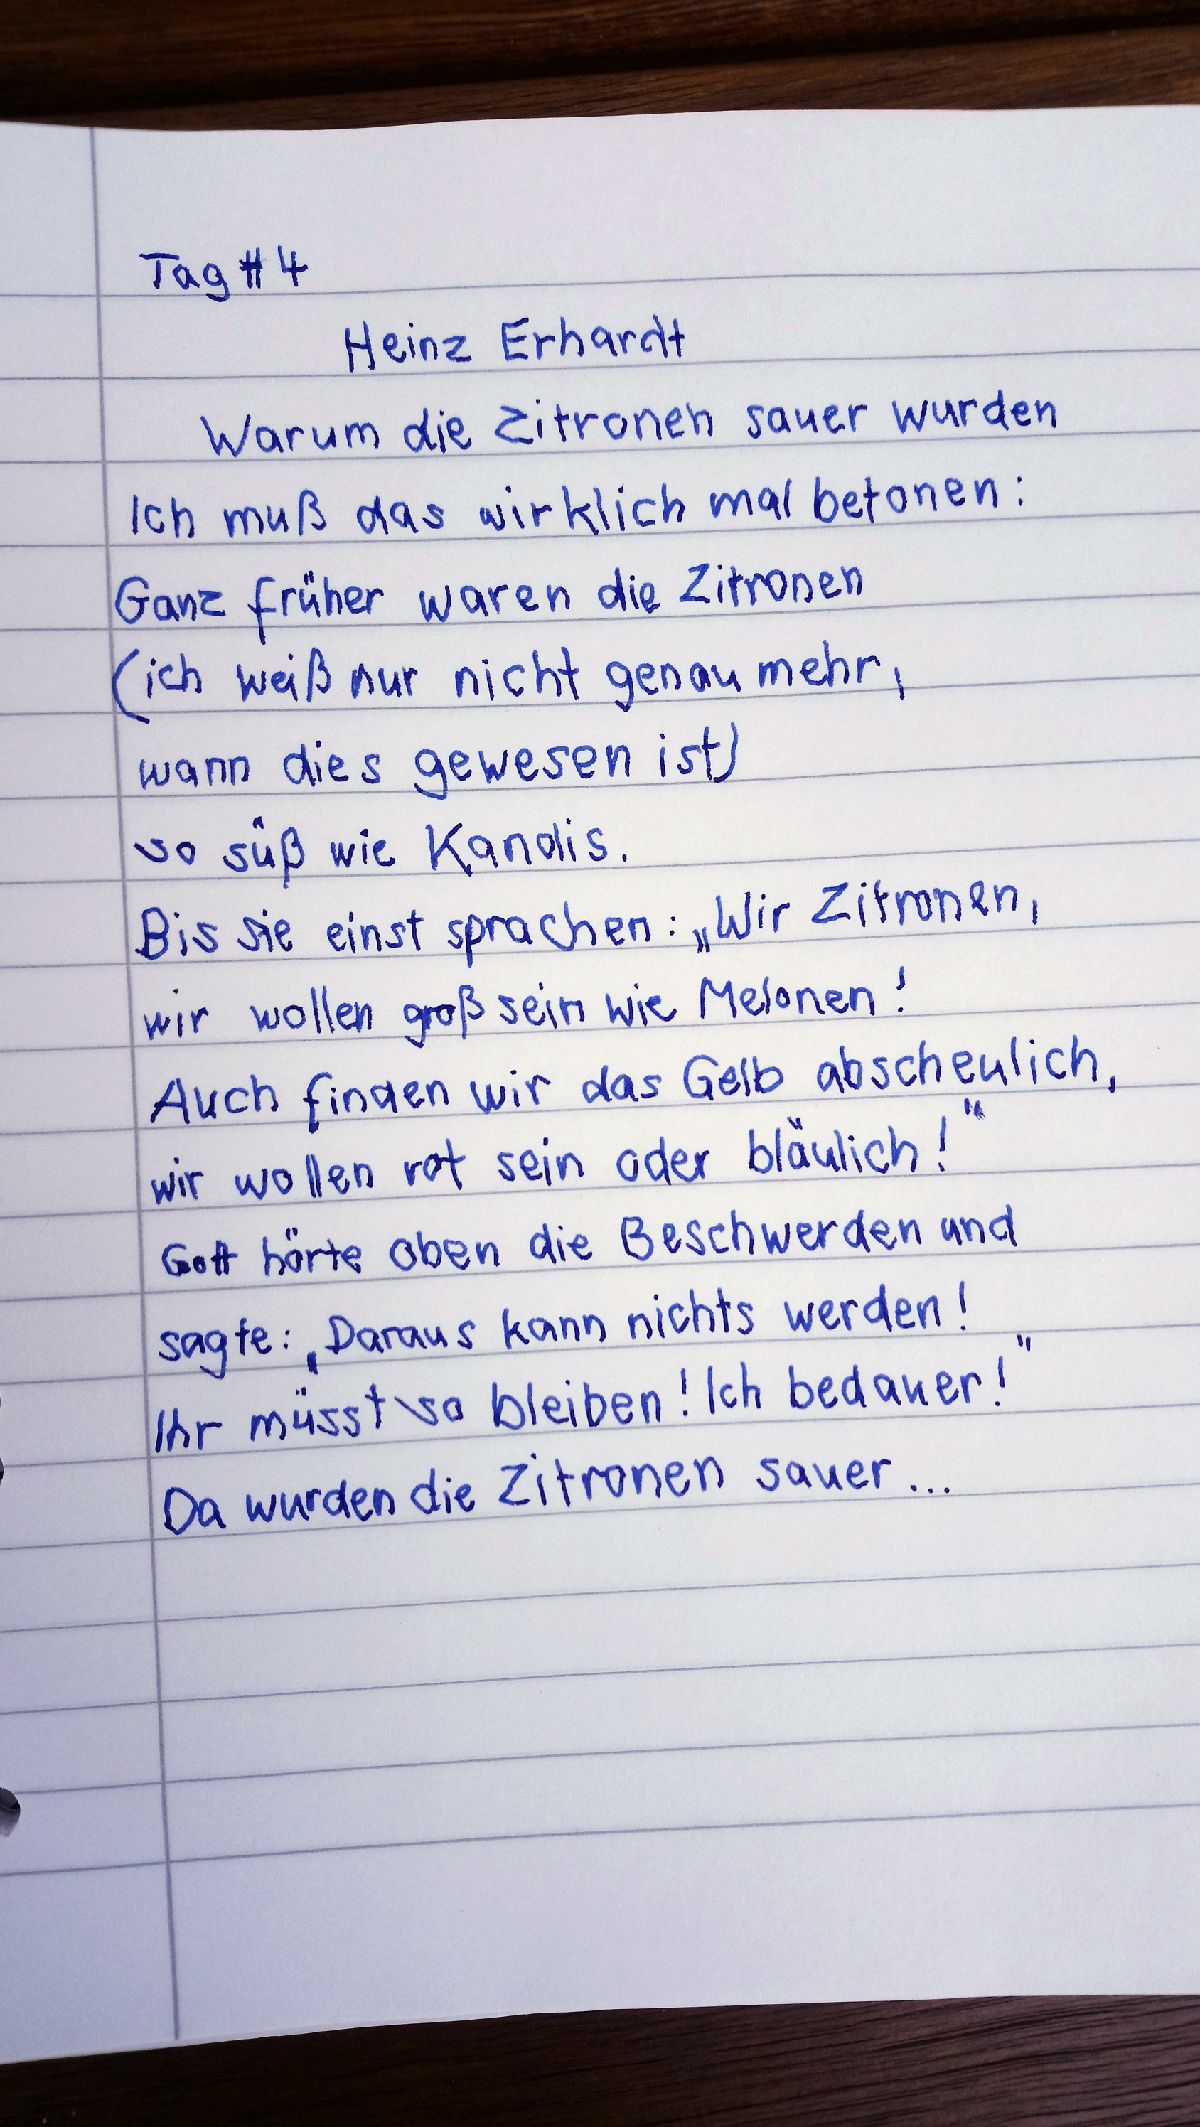 Tag #4
Heinz Erhardt
Warum die Zitronen sauer wurden
Ich muß das wirklich mal betonen:
Ganz früher waren die Zitronen
(ich weiß nur nicht genau mehr,
wann dies gewesen ist)
so süß wie Kandis.
Bis sie einst sprachen: „Wir Zitronen,
wir wollen groß sein wie Melonen!
Auch finden wir das Gelb abscheulich,
wir wollen rot sein oder bläulich!"
Gott hörte oben die Beschwerden und
sagte: „Daraus kann nichts werden!
Ihr müsst so bleiben! Ich bedauer!"
Da wurden die Zitronen sauer...